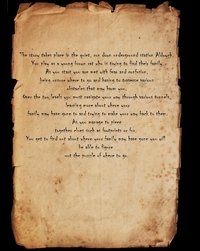 The story takes place in the quiet, run down underground station Aldwych.
You play as a young brown rat who is trying to find their family.
As you start you are met with fear and confusion,
being unsure where to go and having to oversee various
obstacles that may harm you.
Over the two levels you must navigate your way through various tunnels,
learning more about where your
family may have gone to and trying to make your way back to them.
As you manage to piece
together clues such as footprints or fur.
You get to find out about where your family may have gone you will
be able to figure
out the puzzle of where to go.